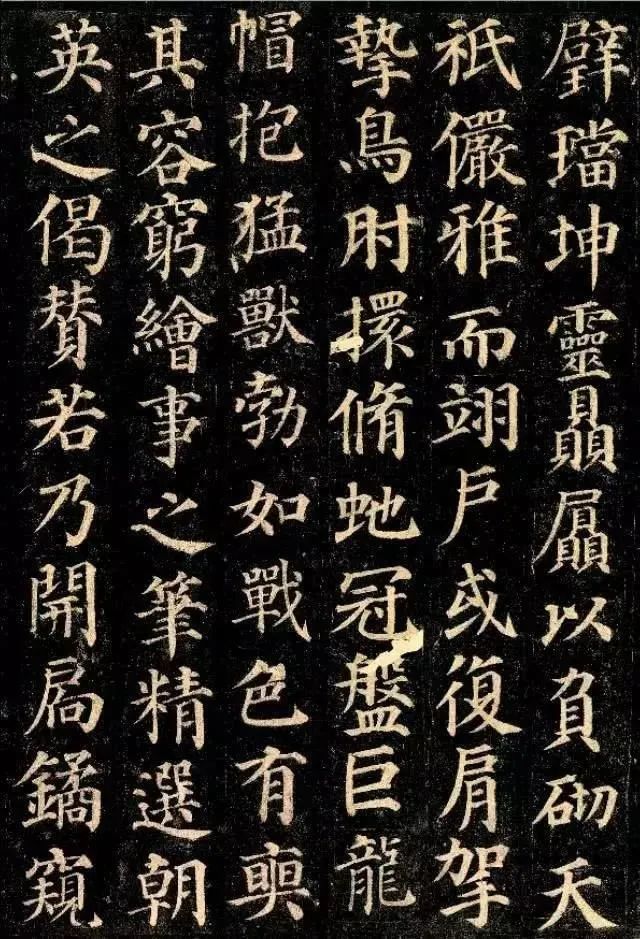 璧璫坤靈贔屭以負砌天
祇儼雅而翊戶或復肩拏
摯鳥肘擐脩虵冠盤巨龍
帽抱猛獸勃如戰色有奭
其容窮繪事之筆精選朝
英之偈贊若乃開扃鐍窺